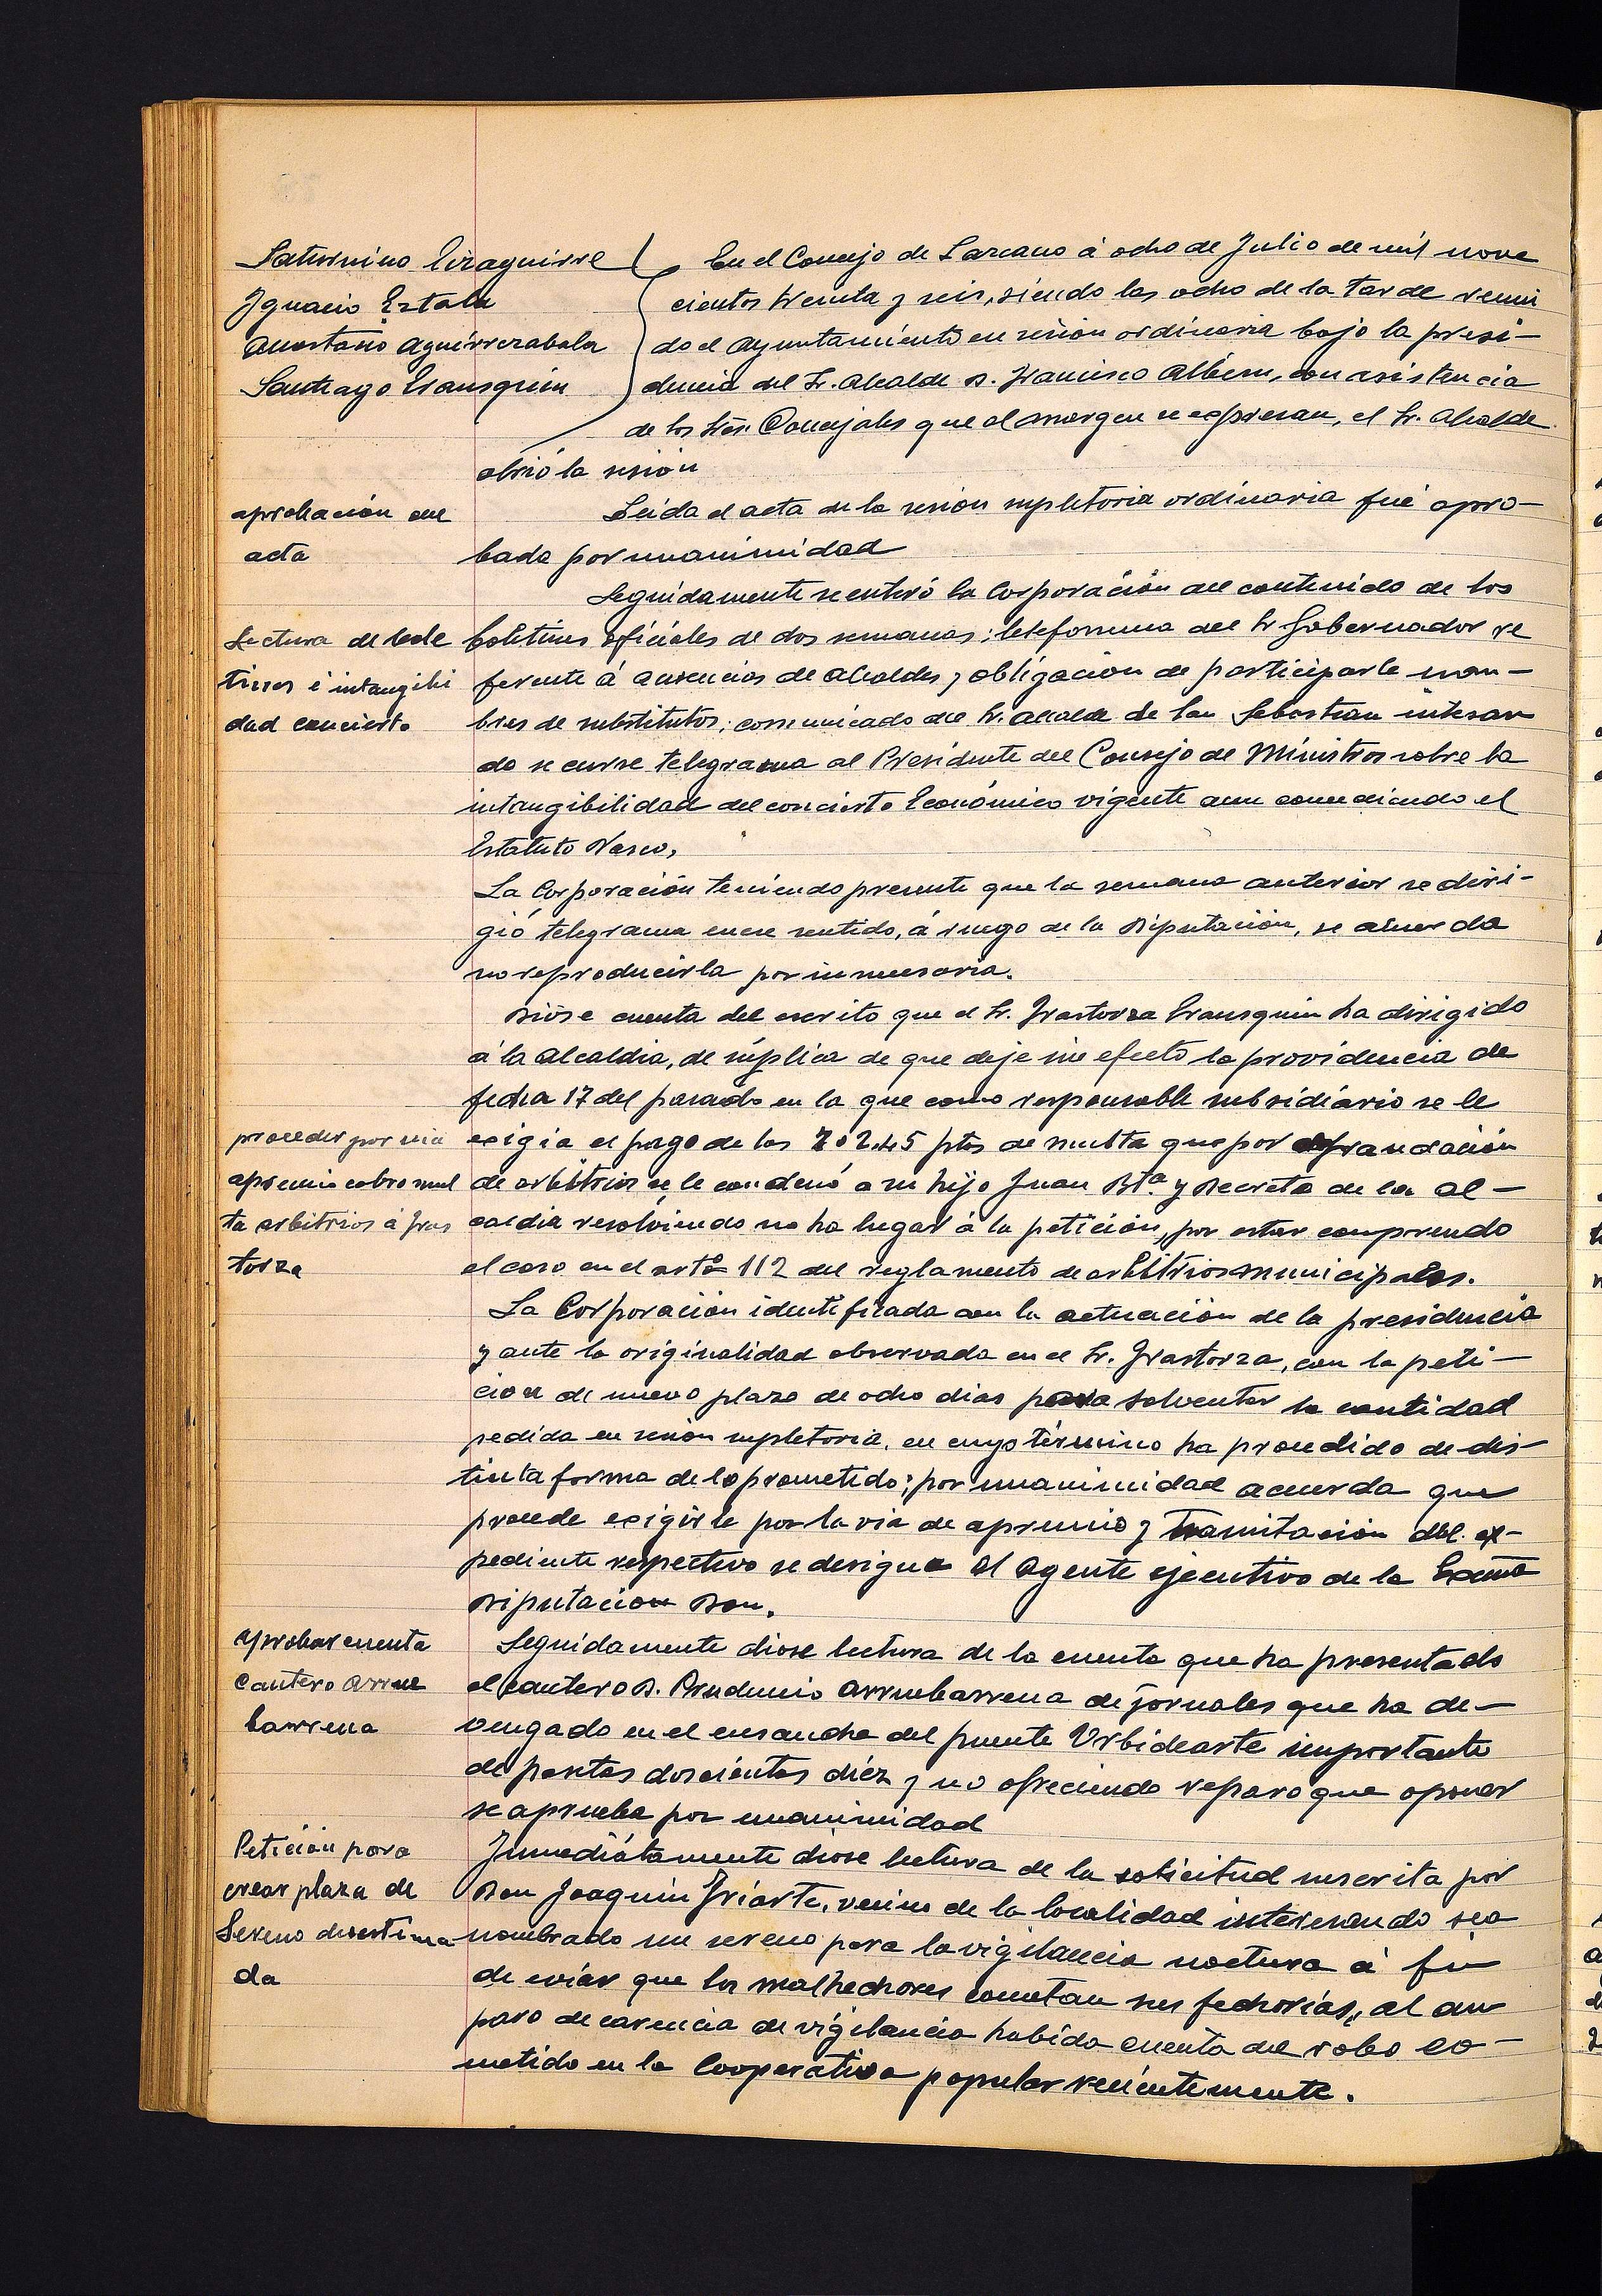 Saturnino Eizaguirre
Ignacio Estala
Anastasio Aguirrezabala
Santiago Iransquin
En el Concejo de Lazcano á ocho de Julio de mil nove
cientos treinta y seis, siendo las ocho de la tarde reuni
do el Ayuntamiento en sesion ordinaria bajo la presi-
dencia del Sr. Alcalde D. Francisco Albisu, con asistencia
de los Sres. Concejales que al margen se expresan, el Sr. Alcalde
abrió la sesión
aprobación del
acta
Leida el acta de la sesion supletoria ordinaria fué apro-
bada por unanimidad
Lectura de bole
tines é intangibi
dad concierto
Seguidamente se enteró la Corporación del contenido de los
boletines oficiales de dos semanas; telefonema del Sr Gobernador re
ferente á ausencias de alcaldes y obligación de participarle nom-
bres de substitutos; comunicado del Sr. alcalde de San Sebastian interesan
do se curse telegrama al Presidente del Consejo de Ministros sobre la
intangibilidad del concierto Económico vigente aun concediendo el
Estatuto Vasco,
La Corporación teniendo presente que la semana anterior se diri-
gió telegrama en ese sentido, á ruego de la Diputación, se acuerda
no reproducirla por innecesaria.
proceder por via
apremio cobro mul
ta arbitrios á Iras
torza
Dióse cuenta del escrito que el Sr. Irastorza Iransquin ha dirigido
á la Alcaldia, de súplica de que deje sin efecto la providencia de
fecha 17 del pasado en la que como responsable subsidiario se le
exigia el pago de las 202,45 ptas de multa que por defraudación
de arbitrios se le condenó a su hijo Juan Bta. y Decreto de la Al-
caldia resolviendo no ha lugar á la petición, por estar comprendo
el caso en el artº 112 del reglamento de arbitrios municipales.
La Corporación identificada con la actuación de la presidencia
y ante la originalidad observada en el Sr. Irastorza, con la peti-
cion de nuevo plazo de ocho dias para solventar la cantidad
pedida en sesion supletoria, en cuyo término ha procedido de dis-
tinta forma de lo prometido; por unanimidad acuerda que
procede exigirle por la via de apremio y tramitación del ex-
pediente respectivo se designe al Agente ejecutivo de la Excma
Diputacion Don.
aprobar cuenta
cantero Arrue
barrena
Seguidamente diose lectura de la cuenta que ha presentado
el cantero D. Prudencio Arruebarrena de jornales que ha de-
vengado en el ensanche del puente Urbidearte importante
de pesetas doscientas diez y no ofreciendo reparo que oponer
se aprueba por unanimidad
Petición para
crear plaza de
Sereno desestima
da
Inmediatamente diose lectura de la solicitud suscrita por
Don Joaquin Iriarte, vecino de la localidad interesando sea
nombrado un sereno para la vigilancia noctura á fin
de eviar que los malhechores cometan sus fechorias, al am
paro de carencia de vigilancia habida cuenta del robo co-
metido en la Cooperativa popular recientemente.